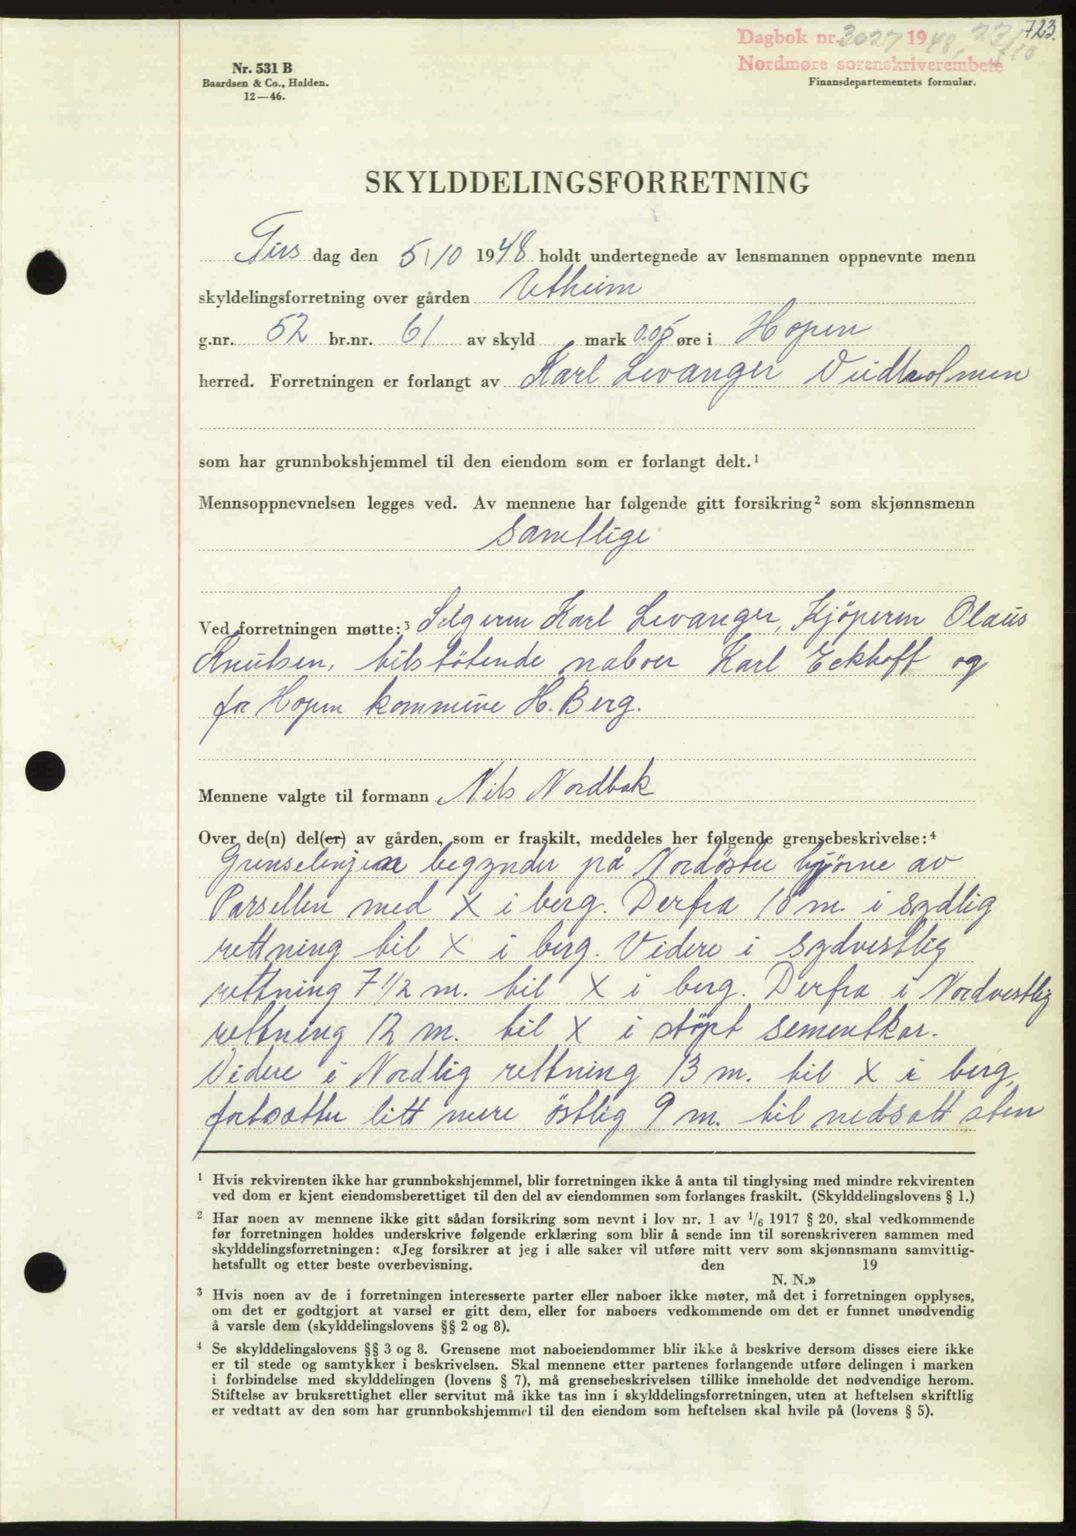 723.
Dagbok nr. 3027 1948, 27/10
Nordmøre sorenskriverembete
Nr. 531 B
Baardsen & Co., Halden.
12—46.
Finansdepartementets formular.
SKYLDDELINGSFORRETNING
Tirs dag den 5/10 1948 holdt undertegnede av lensmannen oppnevnte menn
skyldelingsforretning over gården Utheim
g.nr. 52 br.nr. 61 av skyld mark 0.05 øre i Hopen
herred. Forretningen er forlangt av Karl Levanger Veidholmen
som har grunnbokshjemmel til den eiendom som er forlangt delt.¹
Mennsoppnevnelsen legges ved. Av mennene har følgende gitt forsikring² som skjønnsmenn
Samtlige
Ved forretningen møtte:³ Selgeren Karl Levanger, Kjöperen Olaus
Knutsen, tilstötende naboer Karl Eckhoff og
for Hopen kommune H. Berg.
Mennene valgte til formann Nils Nordbak
Over de(n) del(er) av gården, som er fraskilt, meddeles her følgende grensebeskrivelse:⁴
Grenselinjen begynder på Nordöstre hjörne av
Parsellen med X i berg. Derfra 18 m. i sydlig
rettning til X i berg. Videre i sydvestlig
rettning 7 1/2 m. til X i berg. Derfra i Nordvestlig
rettning 12 m. til X i stöpt sementkar.
Videre i Nordlig rettning 13 m. til X i berg,
fortsætter litt mere östlig 9 m. til nedsatt sten
¹ Hvis rekvirenten ikke har grunnbokshjemmel, blir forretningen ikke å anta til tinglysing med mindre rekvirenten
ved dom er kjent eiendomsberettiget til den del av eiendommen som forlanges fraskilt. (Skylddelingslovens § 1.)
² Har noen av mennene ikke gitt sådan forsikring som nevnt i lov nr. 1 av 1/6 1917 § 20, skal vedkommende
før forretningen holdes underskrive følgende erklæring som blir å sende inn til sorenskriveren sammen med
skylddelingsforretningen: «Jeg forsikrer at jeg i alle saker vil utføre mitt verv som skjønnsmann samvittig-
hetsfullt og etter beste overbevisning. den 19
N. N.»
³ Hvis noen av de i forretningen interesserte parter eller naboer ikke møter, må det i forretningen opplyses,
om det er godtgjort at varsel er gitt dem, eller for naboers vedkommende om det er funnet unødvendig
å varsle dem (skylddelingslovens §§ 2 og 8).
⁴ Se skylddelingslovens §§ 3 og 8. Grensene mot naboeiendommer blir ikke å beskrive dersom disses eiere ikke
er til stede og samtykker i beskrivelsen. Skal mennene etter partenes forlangende utføre delingen i marken
i forbindelse med skylddelingen (lovens § 7), må grensebeskrivelsen tillike inneholde det nødvendige herom.
Stiftelse av bruksrettighet eller servitut må ikke tas inn i skylddelingsforretningen, uten at heftelsen skriftlig
er vedtatt av den som har grunnbokshjemmel til den eiendom som heftelsen skal hvile på (lovens § 5).